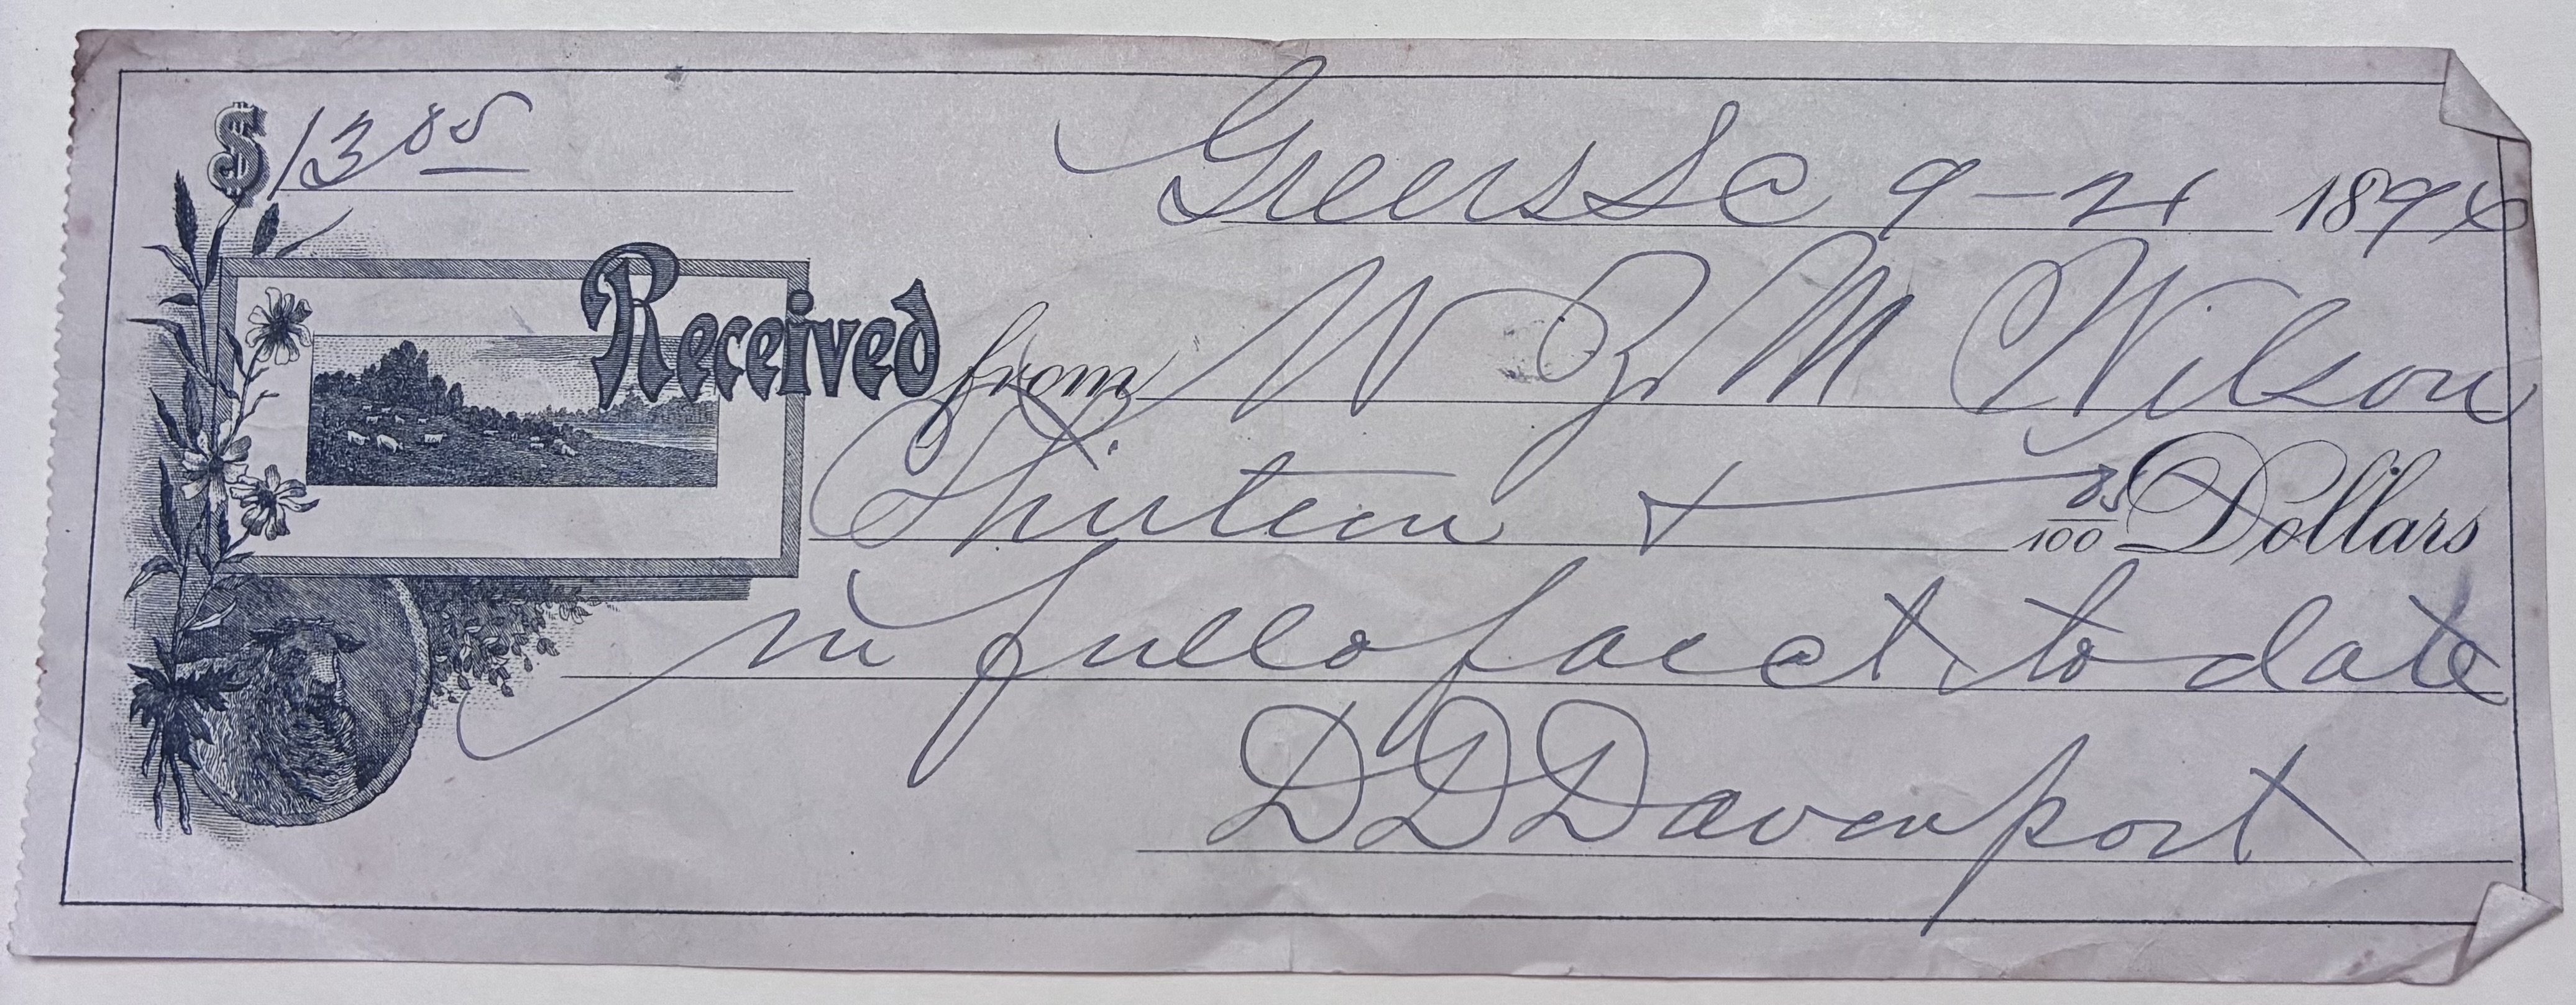 $ 13 85
Greers S C 9-21 1894
Received from W Z M Wilson
Thirteen + 85/100 Dollars
in full of acct to date
D D Davenport